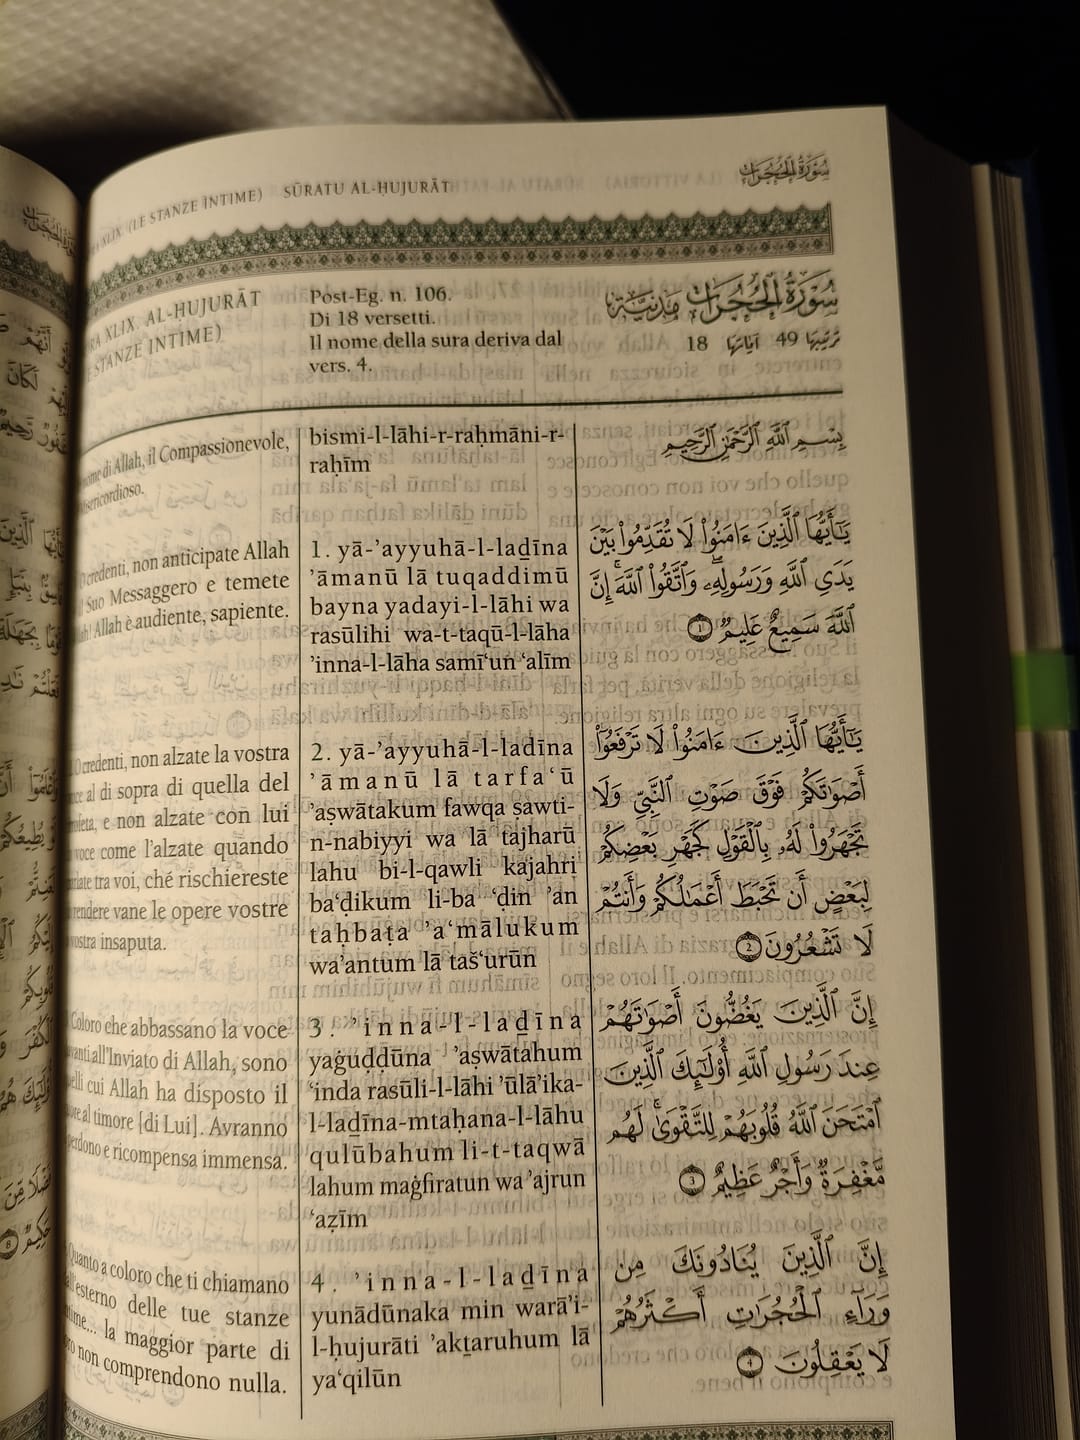 (LE STANZE INTIME) SŪRATU AL-ḤUJURĀT
سُورَةُ الحُجُرَات
XLIX AL-ḤUJURĀT
STANZE INTIME)
Post-Eg. n. 106.
Di 18 versetti.
Il nome della sura deriva dal
vers. 4.
سُورَةُ الحُجُرَات مَدَنِيَّة
تَرْتِيبُهَا 49 آيَاتُهَا 18
di Allah, il Compassionevole,
bismi-l-lāhi-r-raḥmāni-r-
raḥīm
بِسْمِ ٱللَّهِ ٱلرَّحْمَٰنِ ٱلرَّحِيمِ
credenti, non anticipate Allah
Suo Messaggero e temete
Allah è audiente, sapiente.
1. yā-’ayyuhā-l-laḏīna
’āmanū lā tuqaddimū
bayna yadayi-l-lāhi wa
rasūlihi wa-t-taqū-l-lāha
’inna-l-lāha samī‘un ‘alīm
يَٰٓأَيُّهَا ٱلَّذِينَ ءَامَنُوا۟ لَا تُقَدِّمُوا۟ بَيْنَ
يَدَىِ ٱللَّهِ وَرَسُولِهِۦ ۖ وَٱتَّقُوا۟ ٱللَّهَ ۚ إِنَّ
ٱللَّهَ سَمِيعٌ عَلِيمٌ ١
credenti, non alzate la vostra
al di sopra di quella del
e non alzate con lui
voce come l’alzate quando
tra voi, ché rischiereste
rendere vane le opere vostre
vostra insaputa.
2. yā-’ayyuhā-l-laḏīna
’āmanū lā tarfa‘ū
’aṣwātakum fawqa ṣawti-
n-nabiyyi wa lā tajharū
lahu bi-l-qawli kajahri
ba‘ḍikum li-ba ‘ḍin ’an
taḥbaṭa ’a‘mālukum
wa’antum lā taš‘urūn
يَٰٓأَيُّهَا ٱلَّذِينَ ءَامَنُوا۟ لَا تَرْفَعُوٓا۟
أَصْوَٰتَكُمْ فَوْقَ صَوْتِ ٱلنَّبِىِّ وَلَا
تَجْهَرُوا۟ لَهُۥ بِٱلْقَوْلِ كَجَهْرِ بَعْضِكُمْ
لِبَعْضٍ أَن تَحْبَطَ أَعْمَٰلُكُمْ وَأَنتُمْ
لَا تَشْعُرُونَ ٢
Coloro che abbassano la voce
all’Inviato di Allah, sono
cui Allah ha disposto il
al timore [di Lui]. Avranno
perdono e ricompensa immensa.
3. ’inna-l-laḏīna
yaġuḍḍūna ’aṣwātahum
‘inda rasūli-l-lāhi ’ūlā’ika-
l-laḏīna-mtaḥana-l-lāhu
qulūbahum li-t-taqwā
lahum maġfiratun wa’ajrun
‘aẓīm
إِنَّ ٱلَّذِينَ يَغُضُّونَ أَصْوَٰتَهُمْ
عِندَ رَسُولِ ٱللَّهِ أُو۟لَٰٓئِكَ ٱلَّذِينَ
ٱمْتَحَنَ ٱللَّهُ قُلُوبَهُمْ لِلتَّقْوَىٰ ۚ لَهُم
مَّغْفِرَةٌ وَأَجْرٌ عَظِيمٌ ٣
Quanto a coloro che ti chiamano
all’esterno delle tue stanze
la maggior parte di
non comprendono nulla.
4. ’inna-l-laḏīna
yunādūnaka min warā’i-
l-ḥujurāti ’akṯaruhum lā
ya‘qilūn
إِنَّ ٱلَّذِينَ يُنَادُونَكَ مِن
وَرَآءِ ٱلْحُجُرَٰتِ أَكْثَرُهُمْ
لَا يَعْقِلُونَ ٤